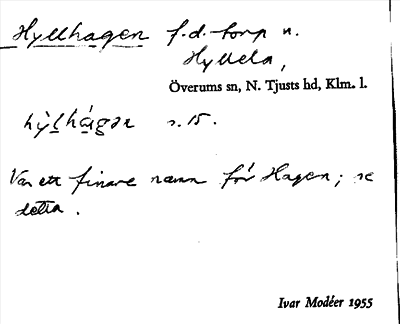 Hyllhagen f.d. torp u.
Hyllela,
Överums sn, N. Tjusts hd, Klm. l.
hỳlhá̱gən s. 15.
Var ett finare namn för Hagen; se
detta.
Ivar Modéer 1955